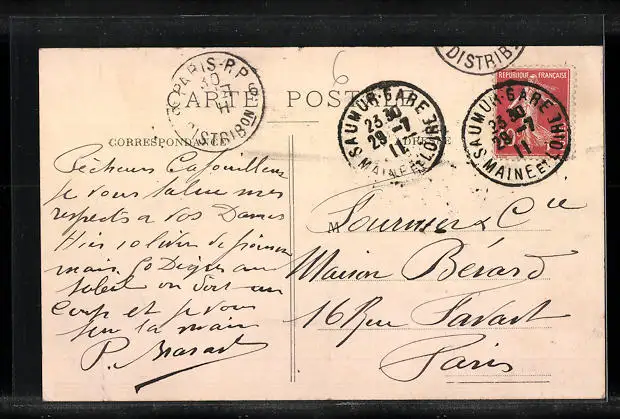 CARTE POSTALE
CORRESPONDANCE
ADRESSE
PARIS-R.P.
30
DISTRIBON
DISTRIB
SAUMUR-GARE
23 30
29 - 7
11
MAINE-ET-LOIRE
SAUMUR-GARE
23 30
29 - 7
11
MAINE-ET-LOIRE
REPUBLIQUE FRANÇAISE
6
Pêcheurs Cafouilleux
Je vous salue mes
respects a vos Dames
Hier 10 livres de
mais 50 Degrés au
Soleil on doit un
Corps et je vous
la main
P.
M Fournier & Cie
Maison Bérard
16 Rue Favart
Paris